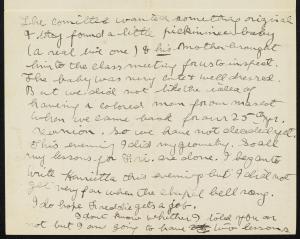 The comittee wanted something original
& they found a little pickininnie baby
(a real live one) & his Mother brought
him to the class meeting for us to inspect.
The baby was very cute & well dressed.
But we did not like the idea of
having a colored man for our mascot
when we came back for our 25th yr.
reunion. So we have not decided yet.
This evening I did my geometry. So all
my lessons for Fri. are done. I began to
write Henrietta this evening but I did not
get very far when the chapel bell rang.
I do hope Freddie gets a job.
I don't know whether I told you or
not but I am going to have two lessons